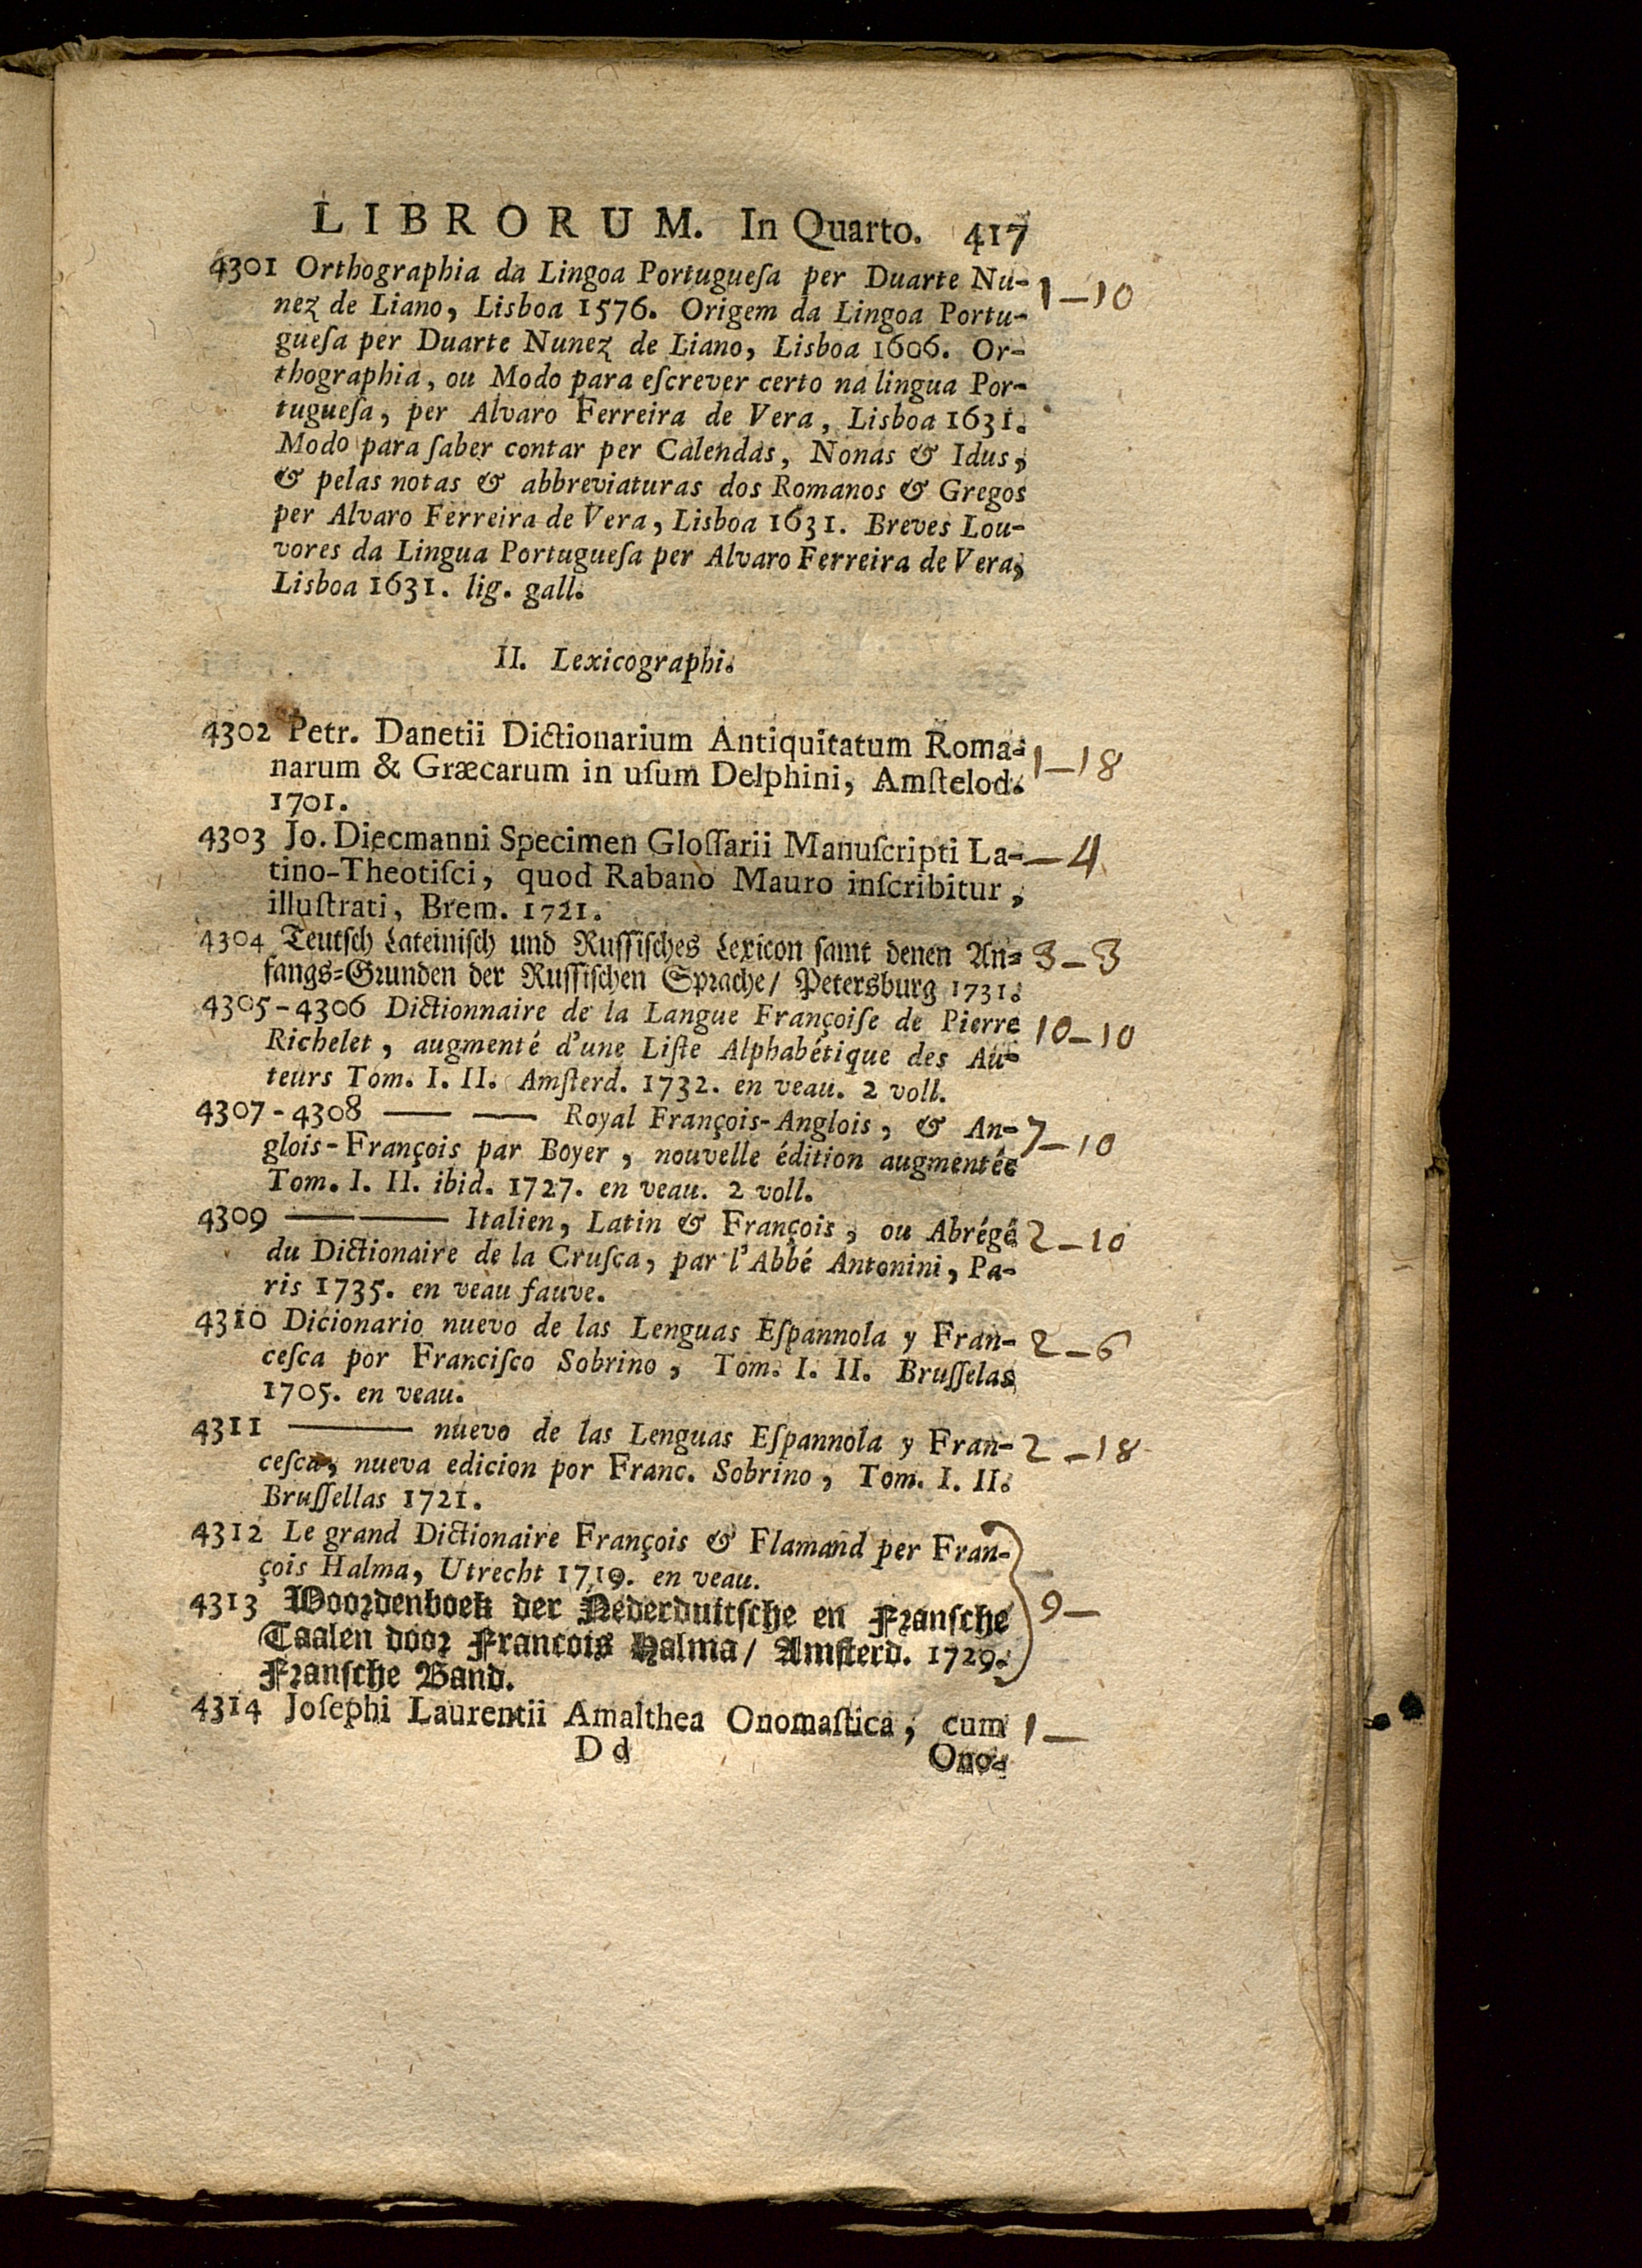 LIBRORUM. In Quarto. 417
4301 Orthographia da Lingoa Portugueſa per Duarte Nu- 1–10
nez de Liano, Lisboa 1576. Origem da Lingoa Portu-
gueſa per Duarte Nunez de Liano, Lisboa 1606. Or-
thographia, ou Modo para eſcrever certo na lingua Por-
tugueſa, per Alvaro Ferreira de Vera, Lisboa 1631.
Modo para ſaber contar per Calendas, Nonas & Idus,
& pelas notas & abbreviaturas dos Romanos & Gregos
per Alvaro Ferreira de Vera, Lisboa 1631. Breves Lou-
vores da Lingua Portugueſa per Alvaro Ferreira de Vera,
Lisboa 1631. lig. gall.
II. Lexicographi.
4302 Petr. Danetii Dictionarium Antiquitatum Roma- 1–18
narum & Græcarum in uſum Delphini, Amſtelod.
1701.
4303 Jo. Diecmanni Specimen Gloſſarii Manuſcripti La- –4
tino-Theotiſci, quod Rabano Mauro inſcribitur,
illuſtrati, Brem. 1721.
4304 Teutſch Lateiniſch und Ruſſiſches Lexicon ſamt denen An- 3–3
fangs-Grunden der Ruſſiſchen Sprache/ Petersburg 1731.
4305-4306 Dictionnaire de la Langue Françoiſe de Pierre 10–10
Richelet, augmenté d'une Liſte Alphabétique des Au-
teurs Tom. I. II. Amſterd. 1732. en veau. 2 voll.
4307-4308 —— —— Royal François-Anglois, & An- 7–10
glois-François par Boyer, nouvelle édition augmentée
Tom. I. II. ibid. 1727. en veau. 2 voll.
4309 —— —— Italien, Latin & François, ou Abrégé 2–10
du Dictionaire de la Cruſca, par l'Abbé Antonini, Pa-
ris 1735. en veau fauve.
4310 Dicionario nuevo de las Lenguas Eſpannola y Fran- 2–6
ceſca por Franciſco Sobrino, Tom. I. II. Bruſſelas
1705. en veau.
4311 —— nuevo de las Lenguas Eſpannola y Fran- 2–18
ceſca, nueva edicion por Franc. Sobrino, Tom. I. II.
Bruſſellas 1721.
4312 Le grand Dictionaire François & Flamand per Fran-
çois Halma, Utrecht 1719. en veau.
4313 Woordenboek der Nederduitſche en Franſche 9–
Taalen door Francois Halma/ Amſterd. 1729.
Franſche Band.
4314 Joſephi Laurentii Amalthea Onomaſtica, cum 1–
D d Ono-